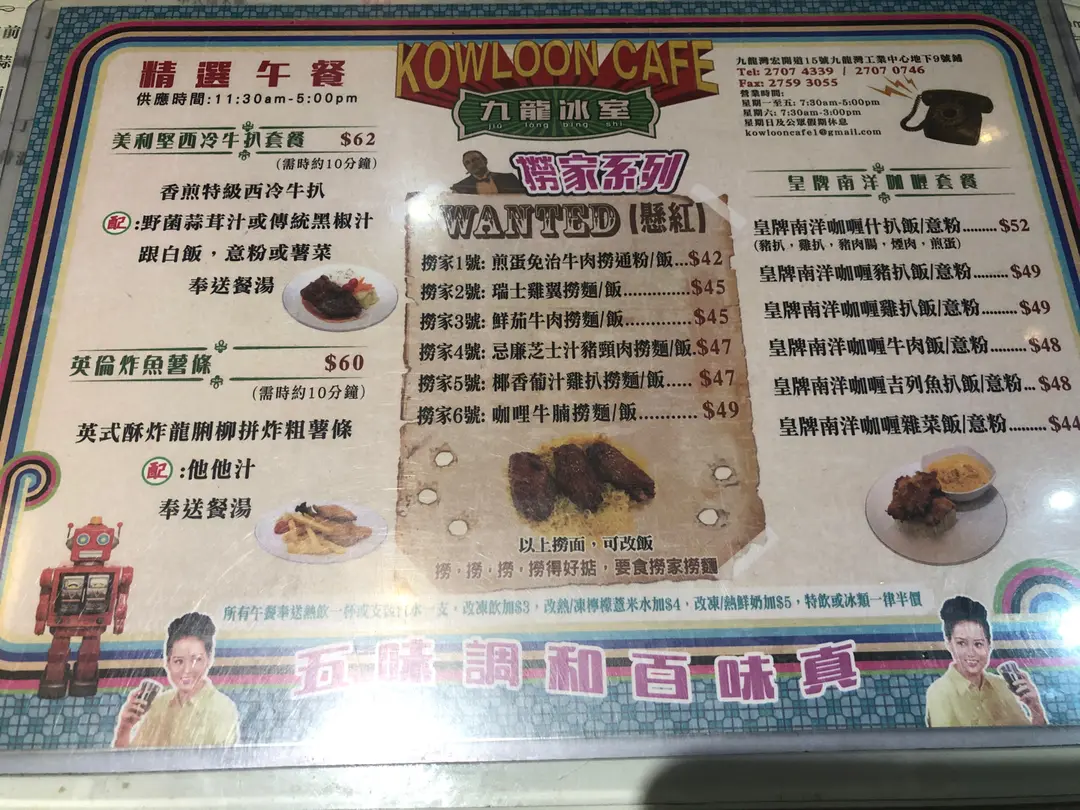 KOWLOON CAFE
九龍冰室
jiu long bing shi
精選午餐
供應時間:11:30am-5:00pm
美利堅西冷牛扒套餐 $62
(需時約10分鐘)
香煎特級西冷牛扒
配:野菌蒜茸汁或傳統黑椒汁
跟白飯，意粉或薯菜
奉送餐湯
英倫炸魚薯條 $60
(需時約10分鐘)
英式酥炸龍脷柳拼炸粗薯條
配:他他汁
奉送餐湯
撈家系列
WANTED [懸紅]
撈家1號: 煎蛋免治牛肉撈通粉/飯...$42
撈家2號: 瑞士雞翼撈麵/飯.............$45
撈家3號: 鮮茄牛肉撈麵/飯.............$45
撈家4號: 忌廉芝士汁豬頸肉撈麵/飯.$47
撈家5號: 椰香葡汁雞扒撈麵/飯..... $47
撈家6號: 咖哩牛腩撈麵/飯........... $49
以上撈面，可改飯
撈，撈，撈，撈得好掂，要食撈家撈麵
九龍灣宏開道15號九龍灣工業中心地下9號舖
Tel: 2707 4339 / 2707 0746
Fax: 2759 3055
營業時間:
星期一至五: 7:30am-5:00pm
星期六: 7:30am-3:00pm
星期日及公眾假期休息
kowlooncafe1@gmail.com
皇牌南洋咖喱套餐
皇牌南洋咖喱什扒飯/意粉.........$52
(豬扒，雞扒，豬肉腸，煙肉，煎蛋)
皇牌南洋咖喱豬扒飯/意粉......... $49
皇牌南洋咖喱雞扒飯/意粉......... $49
皇牌南洋咖喱牛肉飯/意粉......... $48
皇牌南洋咖喱吉列魚扒飯/意粉... $48
皇牌南洋咖喱雜菜飯/意粉......... $44
所有午餐奉送熱飲一杯或支裝 水一支。改凍飲加$3，改熱/凍檸檬薏米水加$4，改凍/熱鮮奶加$5，特飲或冰類一律半價
五味調和百味真